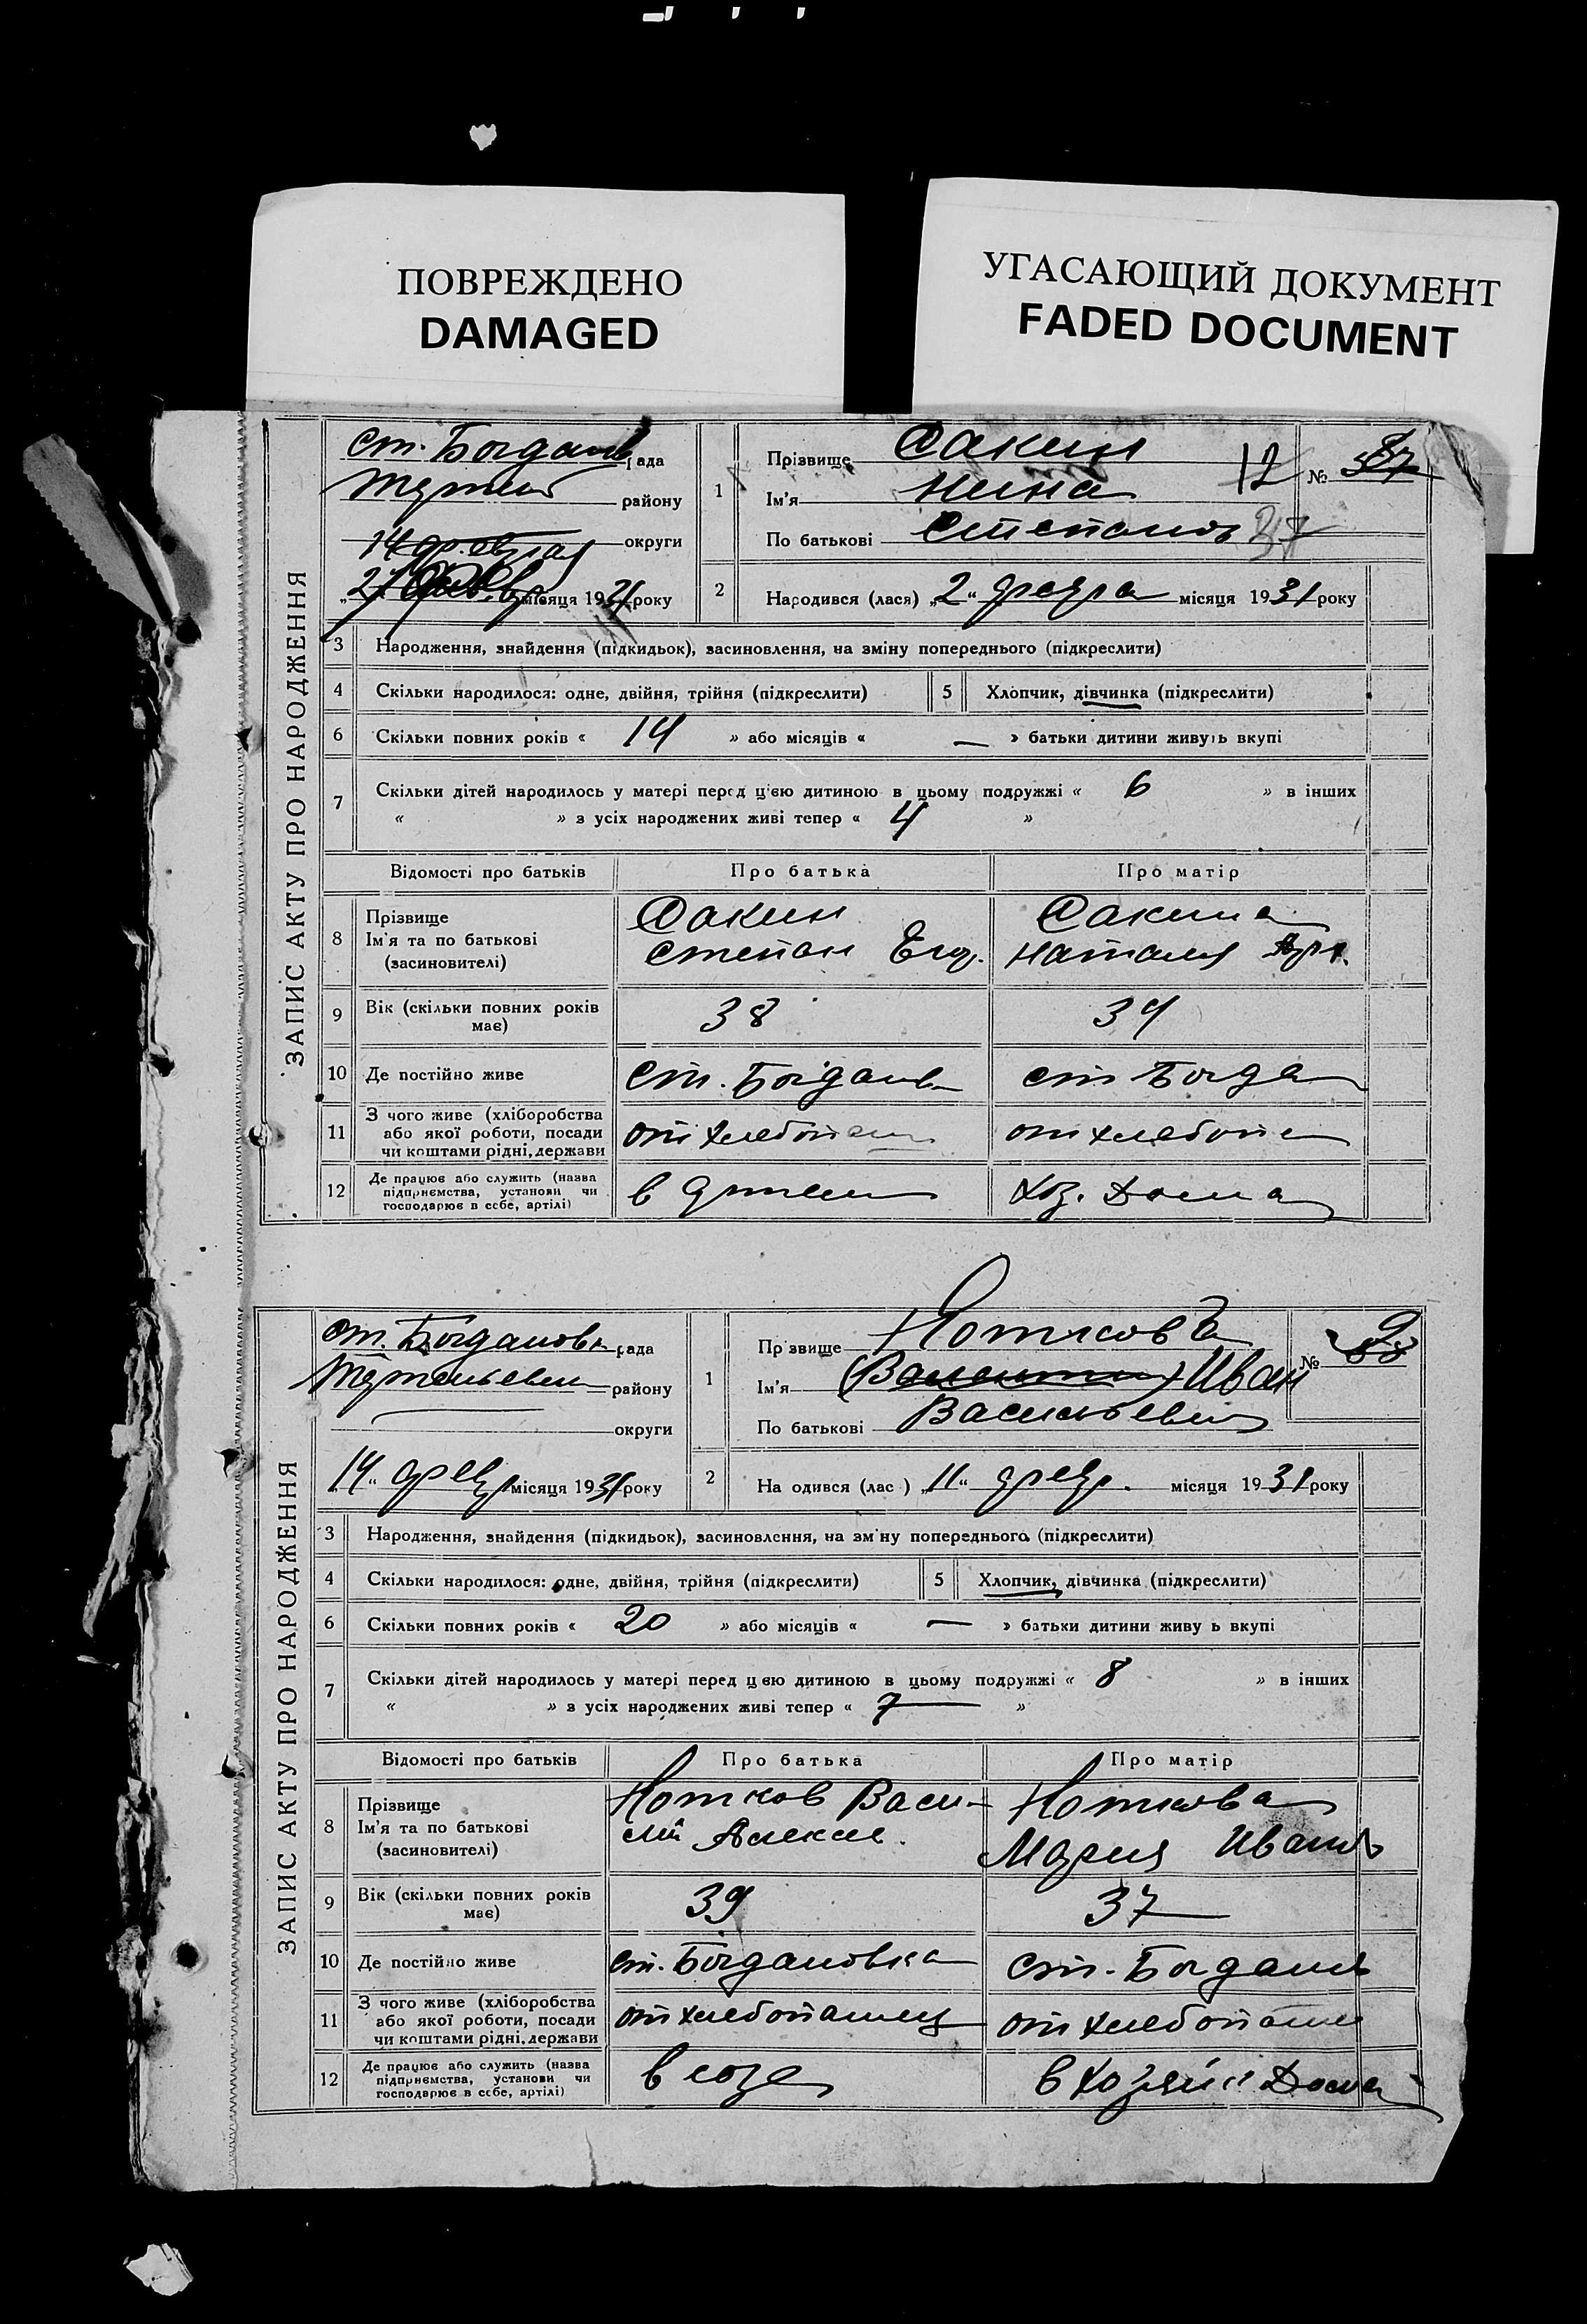 ПОВРЕЖДЕНО
DAMAGED
УГАСАЮЩИЙ ДОКУМЕНТ
FADED DOCUMENT
ЗАПИС АКТУ ПРО НАРОДЖЕННЯ
ст. Богданов рада
району
14 февраля округи
27 місяця 1931 року
1
Прізвище Сакин
Ім'я Нина
По батькові Степанов 37
12
№ 37
2
Народився (лася) „2“ февра місяця 1931 року
3 Народження, знайдення (підкидьок), засиновлення, на зміну попереднього (підкреслити)
4 Скільки народилося: одне, двійня, трійня (підкреслити)
5 Хлопчик, дівчинка (підкреслити)
6 Скільки повних років « 14 » або місяців « — » батьки дитини живуть вкупі
7 Скільки дітей народилось у матері перед цією дитиною в цьому подружжі « 6 » в інших
« » з усіх народжених живі тепер « 4 »
Відомості про батьків Про батька Про матір
8 Прізвище Ім'я та по батькові (засиновителі)
Сакин Степан Егор.
Сакина Наталия
9 Вік (скільки повних років має) 38 34
10 Де постійно живе ст. Богданов ст Богда
11 З чого живе (хліборобства або якої роботи, посади чи коштами рідні, держави
от хлебопаш от хлебопа
12 Де працює або служить (назва підприємства, установи чи господарює в себе, артілі)
в хоз. Дома
ЗАПИС АКТУ ПРО НАРОДЖЕННЯ
ст. Богдановк рада
району
округи
„14“ февр місяця 1931 року
1
Пр звище
Ім'я (Валентин) Иван
По батькові Васильевич
№ 88
2
На одився (лас ) „11“ февр. місяця 1931 року
3 Народження, знайдення (підкидьок), засиновлення, на зм ну попереднього (підкреслити)
4 Скільки народилося: одне, двійня, трійня (підкреслити)
5 Хлопчик, дівчинка (підкреслити)
6 Скільки повних років « 20 » або місяців « — » батьки дитини живу ь вкупі
7 Скільки дітей народилось у матері перед цією дитиною в цьому подружжі « 8 » в інших
« » з усіх народжених живі тепер « 7 »
Відомості про батьків Про батька Про матір
8 Прізвище Ім'я та по батькові (засиновителі)
Васи-
лий Алексее.
Мария Иванов
9 Вік (скільки повних років має) 39 37
10 Де постійно живе ст. Богдановка ст. Богданов
11 З чого живе (хліборобства або якої роботи, посади чи коштами рідні, держави
от хлебопашец от хлебопаше
12 Де працює або служить (назва підприємства, установи чи господарює в себе, артілі)
в созе в хозяй Дома